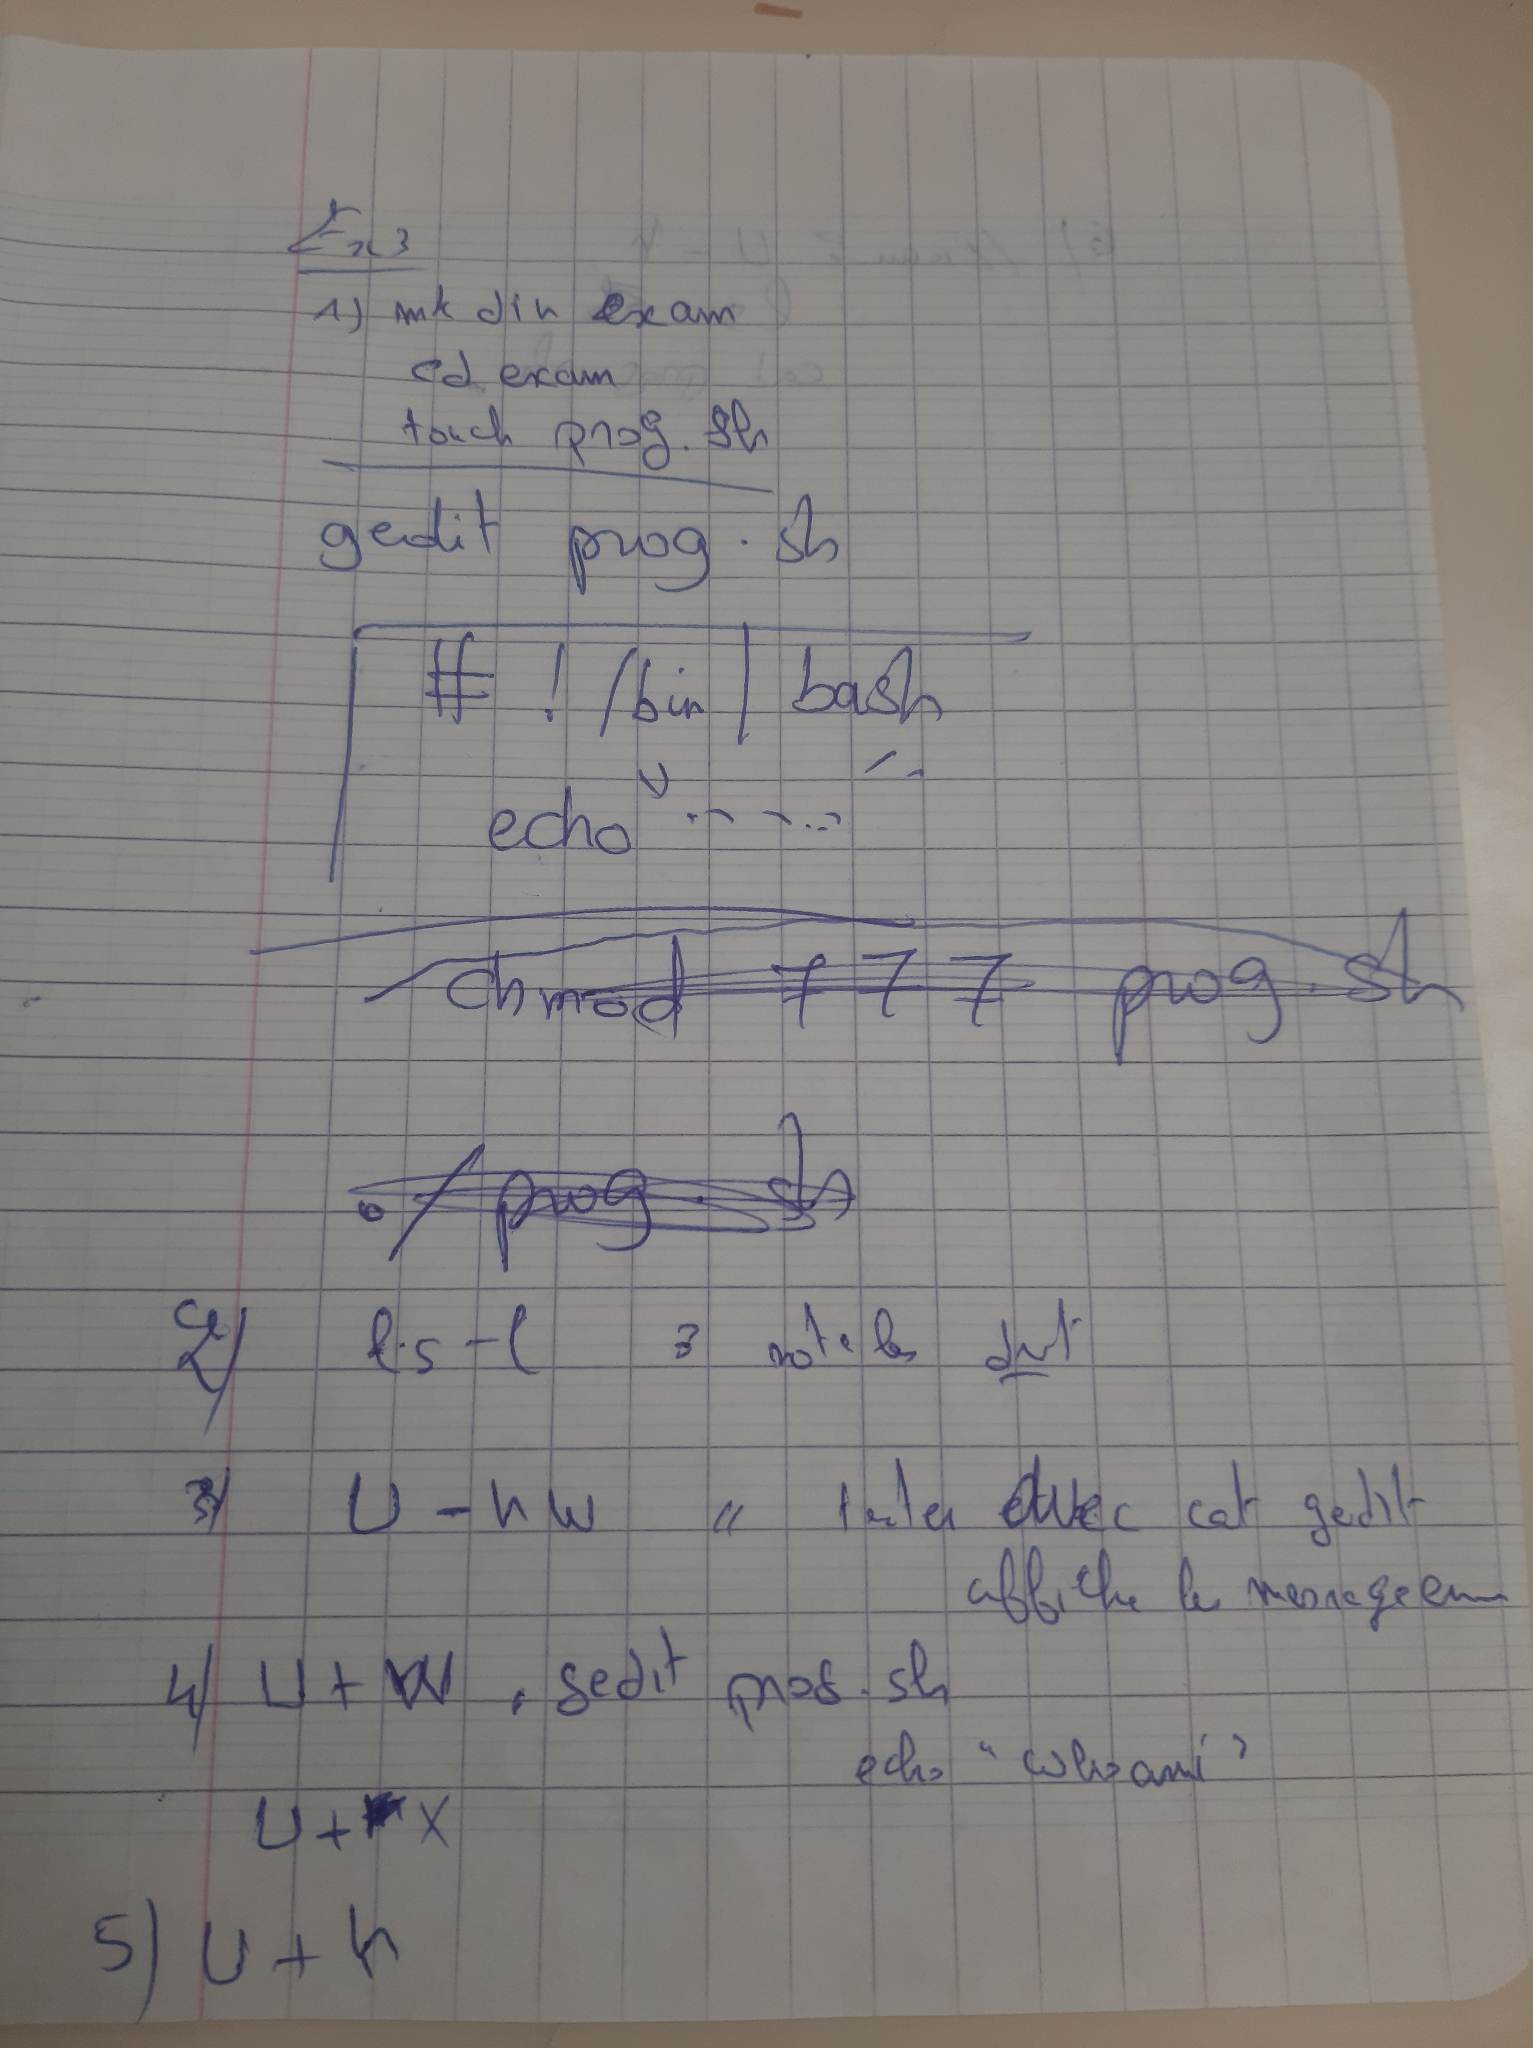 Ex 3
1) mkdir exam
cd exam
touch prog.sh
gedit prog.sh
#!/bin/bash
echo " "
chmod 777 prog.sh
./prog.sh
2) ls -l note les
3) U-rw " tester avec cat gedit
affiche le message
4) U+W, gedit prog.sh
echo "whoami"
U+X
5) U+r